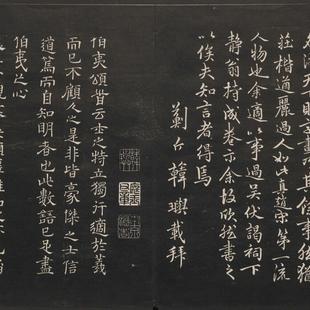 莊楷遒麗過人如此真趙宗第一流
人物也余適以事過吳伏謁祠下
靜翁持成卷示余故欣然書之
以俟夫知言者得焉
薊丘韓璵載拜
伯夷頌昔云士之特立獨行適於義
而已不顧人之是非皆豪傑之士信
道篤而自知明者也此數語已足盡
伯夷之心